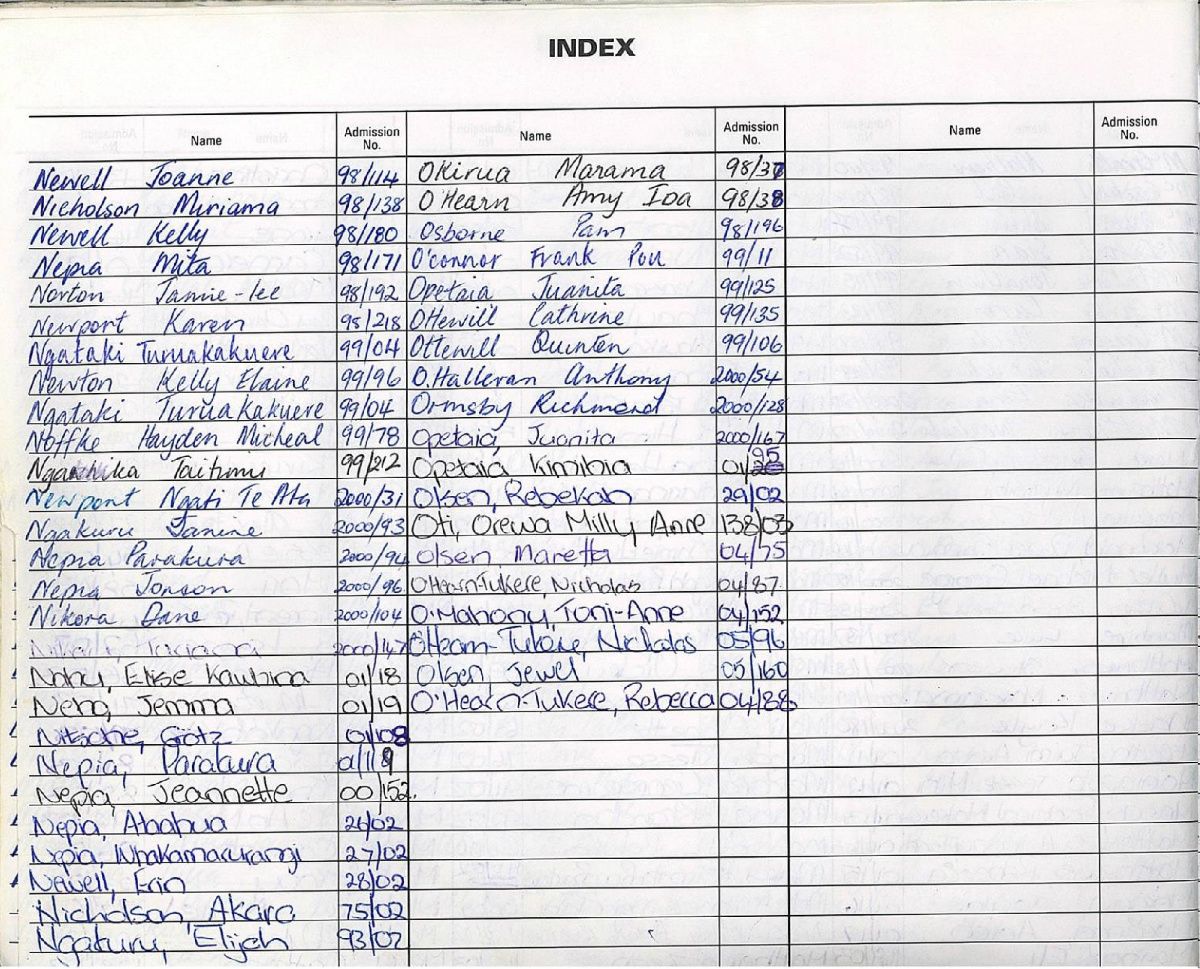 INDEX
Name Admission No. Name Admission No. Name Admission No.
Newell Joanne 98/114
Nicholson Miriama 98/138
Newell Kelly 98/180
Nepia Mita 98/171
Norton Jamie-lee 98/192
Newport Karen 98/218
Ngataki Turuakakuere 99/04
Newton Kelly Elaine 99/96
Ngataki Turuakakuere 99/04
Noffke Hayden Micheal 99/78
Taitimu 99/212
Newport Ngati Te Ata 2000/31
Ngakuru Janine 2000/93
Nepia Parakura 2000/94
Nepia Jonson 2000/96
Nikora Dane 2000/104
2000/147
Elise 01/18
Jemma 01/19
Nitsche, Götz 01/08
Nepia, Parakura
Nepia, Jeannette 00/152.
Nepia, 26/02
Nepia, 27/02
Newell, Erin 28/02
Nicholson, Akara 75/02
Elijah 93/02
Okirua Marama 98/37
O'Hearn Amy Ioa 98/38
Osborne Pam 98/196
O'connor Frank Pou 99/11
Opetaia Juanita 99/125
Ottewill Cathrine 99/135
Ottewill Quinten 99/106
O.Halleran Anthony 2000/54
Ormsby Richmond 2000/128
Opetaia, Juanita 2000/167
Opetaia Kimibia 01/95
Olsen, Rebekah 29/02
Oti, Orewa Milly Anne 138/03
Olsen, Maretta 04/75
OHearn-Tukere, Nicholas 04/87
O'Mahony, Toni-Anne 04/152
OHearn-Tukere, Nicholas 05/96
Olsen, Jewel 05/160
O'Hearn-Tukere, Rebecca 04/88